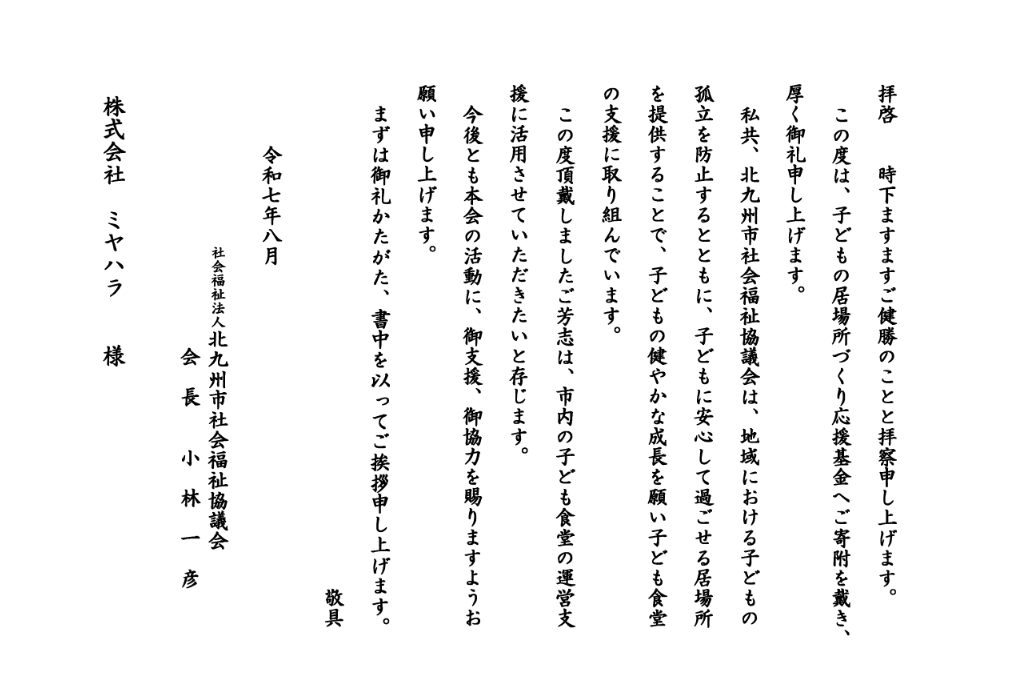 拝啓　時下ますますご健勝のことと拝察申し上げます。
この度は、子どもの居場所づくり応援基金へご寄附を戴き、
厚く御礼申し上げます。
私共、北九州市社会福祉協議会は、地域における子どもの
孤立を防止するとともに、子どもに安心して過ごせる居場所
を提供することで、子どもの健やかな成長を願い子ども食堂
の支援に取り組んでいます。
この度頂戴しましたご芳志は、市内の子ども食堂の運営支
援に活用させていただきたいと存じます。
今後とも本会の活動に、御支援、御協力を賜りますようお
願い申し上げます。
まずは御礼かたがた、書中を以ってご挨拶申し上げます。
敬具
令和七年八月
社会福祉法人北九州市社会福祉協議会
会長　小林一彦
株式会社　ミヤハラ　様